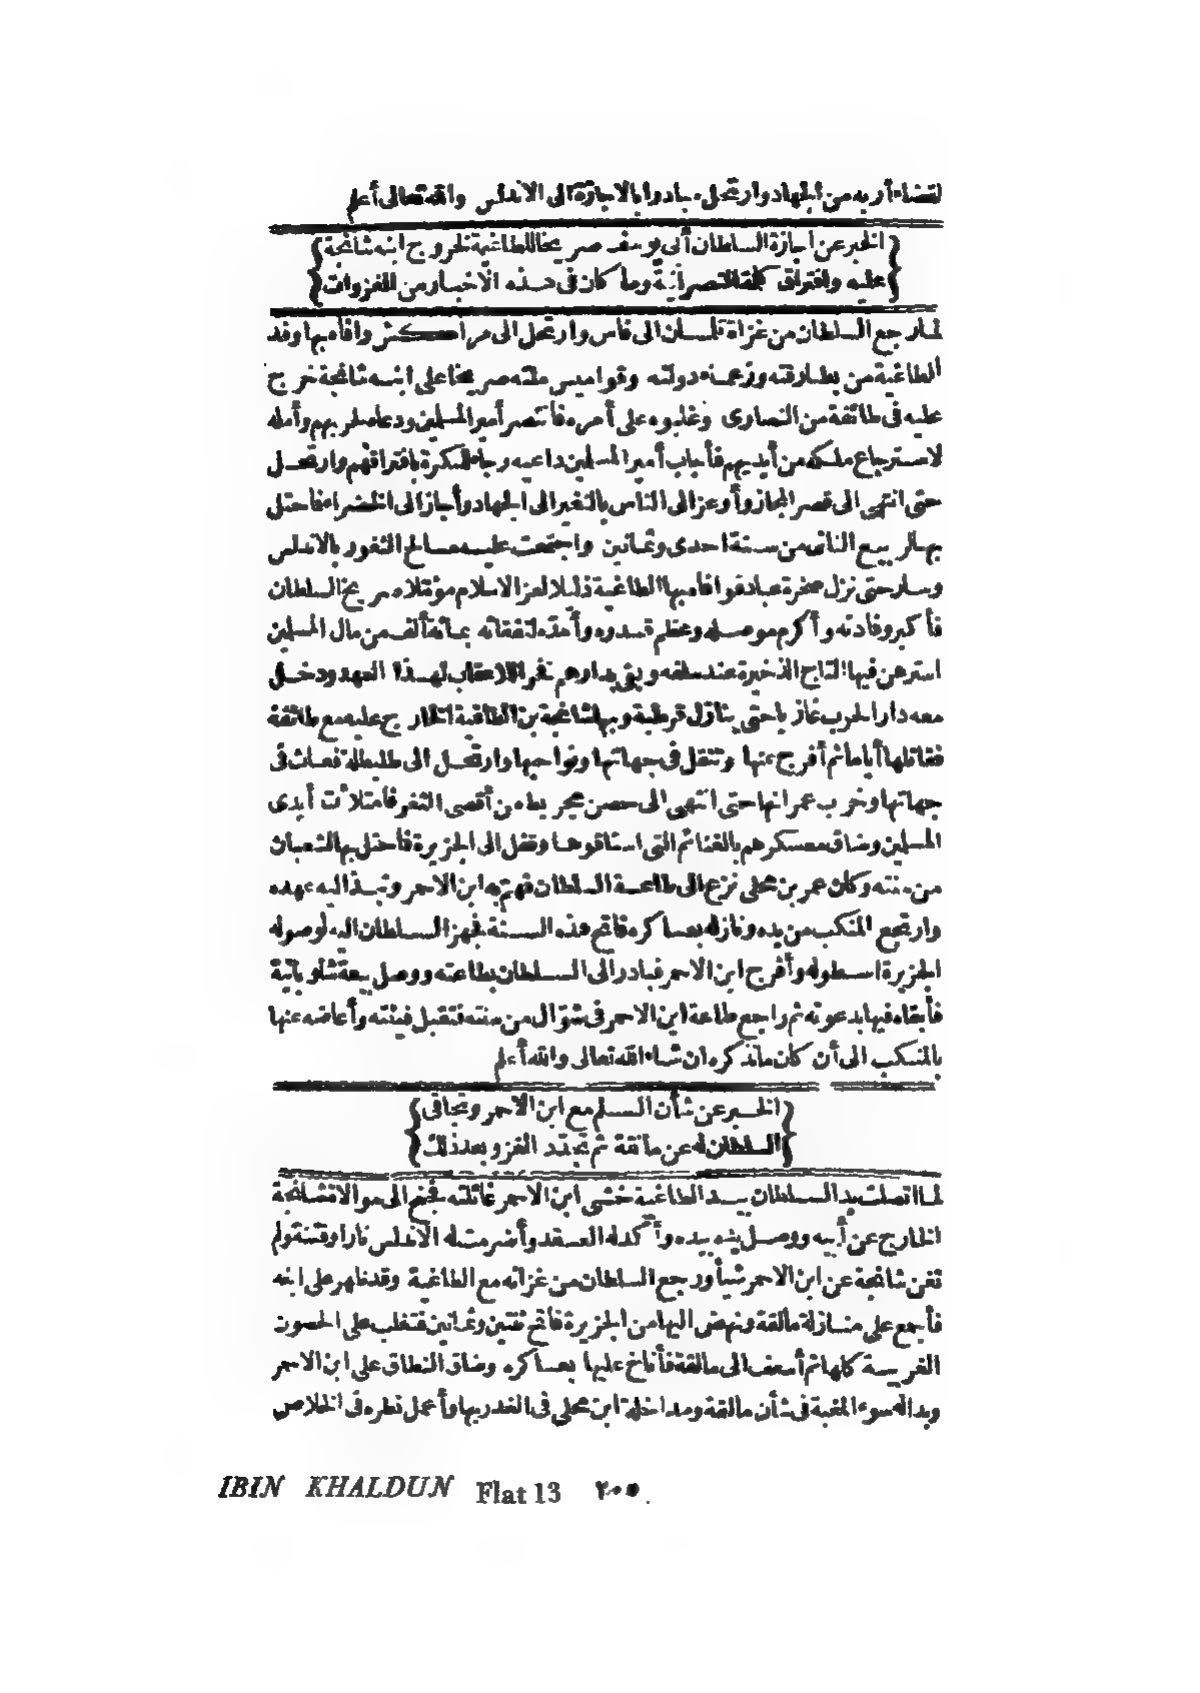 لقضاء أربه من الجهاد وارتحل مبادرا بالاجازة الى الاندلس والله تعالى أعلم
{الخبر عن اجازة السلطان أبى يوسف صريخا للطاغية لخروج ابنه شانجة
عليه وافتراق كلمة النصرانية وما كان فى هذه الاخبار من الغزوات}
لما رجع السلطان من غزاة تلمسان الى فاس وارتحل الى مراكش وافاه بها وفد
الطاغية من بطارقته وزعماء دولته وقواميس ملته صريخا على ابنه شانجة خرج
عليه فى طائفة من النصارى وغلبوه على أمره فانتصر أمير المسلمين ودعاه لحربهم وأمله
لاسترجاع ملكه من أيديهم فأجاب أمير المسلمين داعيه رجاء للكرة بافتراقهم وارتحل
حتى انتهى الى قصر المجاز وأوعز الى الناس بالنفير الى الجهاد وأجاز الى الخضراء فاحتل
بها لربيع الثانى من سنة احدى وثمانين واجتمعت عليه مسالح الثغور بالاندلس
وسار حتى نزل صخرة عباد فوافاه بها الطاغية ذليلا لعز الاسلام مؤملا صريخ السلطان
فأكبر وفادته وأكرم موصله وعظم قدره وأمده لنفقاته بمائة ألف من مال المسلمين
استرهن فيها التاج الذخيرة عند سلفه وبقى بدارهم فخرا للاعقاب لهذا العهد ودخل
معه دار الحرب غازيا حتى ينازل قرطبة وبها شانجة بن الطاغية الخارج عليه مع طائفة
فقاتلها أياما ثم أفرج عنها وتنقل فى جهاتها ونواحيها وارتحل الى طليطلة فعاث فى
جهاتها وخرب عمرانها حتى انتهى الى حصن مجريط من أقصى الثغر فامتلأت أيدى
المسلمين وضاق معسكرهم بالغنائم التى استاقوها وقفل الى الجزيرة فاحتل بها لشعبان
من سنته وكان عمر بن محلى نزع الى طاعة السلطان فهم به ابن الاحمر ونبذ اليه عهده
وارتجع المنكب من يده ونازله بعساكره فاتح هذه السنة فجهز السلطان اليه لوصوله
الجزيرة اسطوله وأفرج ابن الاحمر فبادر الى السلطان بطاعته ووصل بيعة شلوبانية
فأبقاه فيها بدعوته ثم راجع طاعة ابن الاحمر فى شوال من سنته فتقبل فيئته وأعاضه عنها
بالمنكب الى أن كان مانذكره ان شاء الله تعالى والله أعلم
{الخبر عن شأن السلم مع ابن الاحمر وتجافى
السلطان له عن مالقة ثم تجدد الغزو بعد ذلك}
لما اتصلت يد السلطان بيد الطاغية خشى ابن الاحمر غائلته فجنح الى موالاة شانجة
الخارج عن أبيه ووصل يده بيده وأكد له العقد وأضرمت له الاندلس نارا وفتنة ولم
تغن شانجة عن ابن الاحمر شيأ ورجع السلطان من غزاته مع الطاغية وقد ظهر على ابنه
فأجمع على منازلة مالقة ونهض اليها من الجزيرة فاتح ثنتين وثمانين فتغلب على الحصون
الغربية كلها ثم أسعف الى مالقة فأناخ عليها بعساكره وضاق النطاق على ابن الاحمر
وبدا له سوء المغبة فى شأن مالقة ومداخلة ابن محلى فى الغدر بها وأعمل نظره فى الخلاص
IBIN KHALDUN Flat 13 ٢٠٥